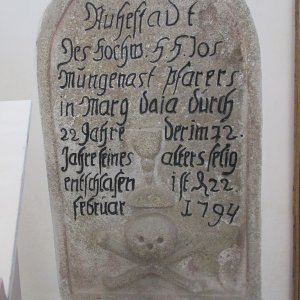 Ruhestadt
Des hochw. H H Jos
Mungenast pfarers
in Marg daia durch
22 Jahre der im 72.
Jahre seines alters selig
entschlafen ist d 22
februar 1794